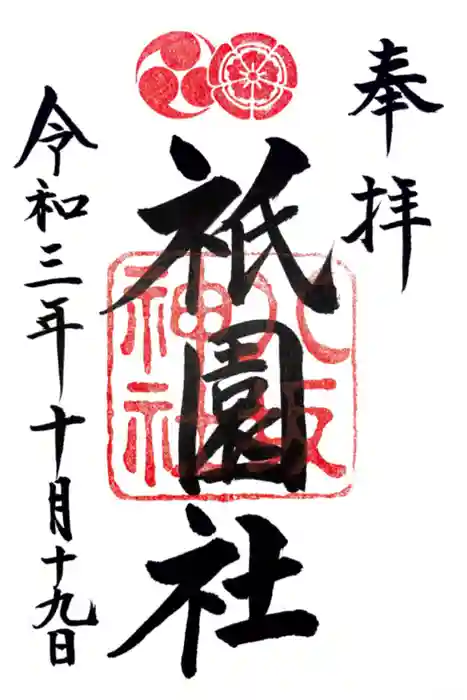 奉拝
祇園社
八坂
神社
令和三年十月十九日